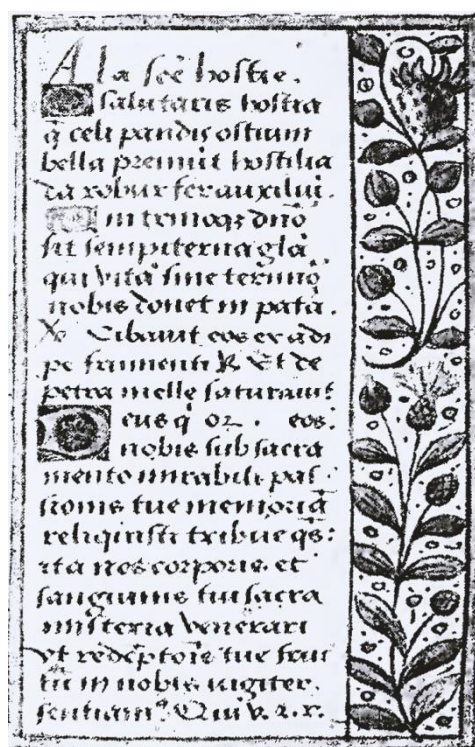 A la scē hostie.
O salutaris hostia
q̄ celi pandis ostium
bella premūt hostilia
da robur fer auxiliūȝ.
Uni trinoqȝ dn̄o
sit sempiterna glā
qui vitā sine termīo
nobis donet in patā.
℣ Cibavit eos ex adi
pe frumenti ℟ Et de
petra melle saturavit
Deus q̄ or. eos.
nobis sub sacra
mento mirabili pas
sionis tue memoriā
reliquisti tribue q̄s:
ita nos corporis et
sanguinis tui sacra
misteria venerari
vt redēptōis tue fruc
tū in nobis iugiter
sentiam⁹. Qui v. ⁊ r.